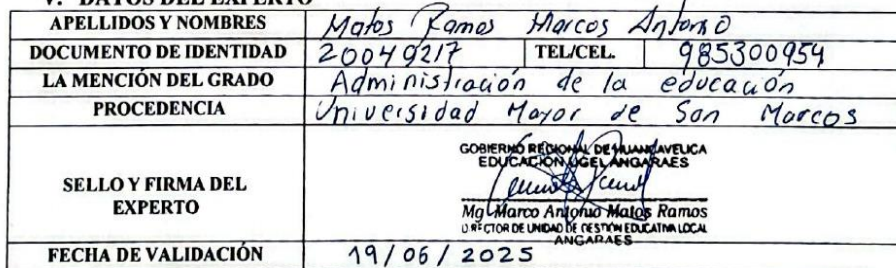 V. DATOS DEL EXPERTO
APELLIDOS Y NOMBRES Matos Ramos Marcos Antonio
DOCUMENTO DE IDENTIDAD 20049217 TEL/CEL. 985300954
LA MENCIÓN DEL GRADO Administración de la educación
PROCEDENCIA Universidad Mayor de San Marcos
SELLO Y FIRMA DEL EXPERTO
GOBIERNO REGIONAL DE HUANCAVELICA
EDUCACIÓN UGEL ANGARAES
Mg. Marco Antonio Matos Ramos
DIRECTOR DE UNIDAD DE GESTIÓN EDUCATIVA LOCAL
ANGARAES
FECHA DE VALIDACIÓN 19/06/2025